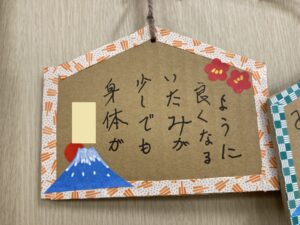 身体が
少しでも
いたみが
良くなる
ように